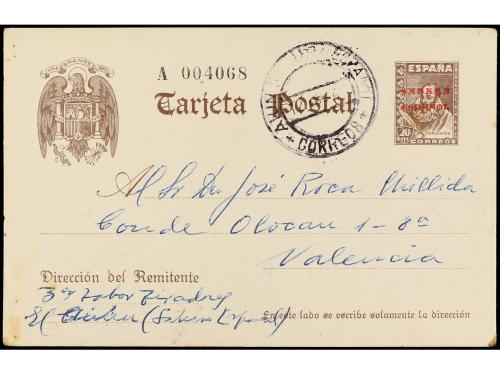 UNA GRANDE LIBRE
A 004068
Tarjeta Postal
CORREOS
ESPAÑA
SAHARA
ESPAÑOL
CERVANTES
CORREOS
Al Sr Dn José Roca Chillida
Conde Olocau 1-8ª
Valencia
Dirección del Remitente
3er Tabor Tiradores
El Aiun (Sahara Español)
En este lado se escribe solamente la dirección